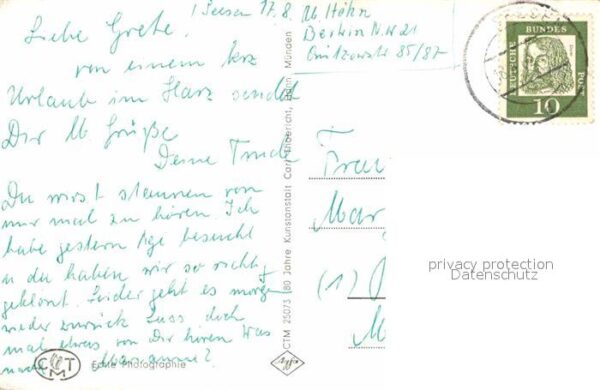 Seesen 17.8.
Abs. Höhn
Berlin N.W 21
85/87
Liebe Grete.
von einem kurz
Urlaub im Harz sendet
Dir lb Grüße
Deine Trude
Du wirst staunen von
mir mal zu hören. Ich
habe gestern besucht
u da haben wir so richtig
geklönt. Leider geht es morgen
wieder zurück Lass doch
mal etwas von Dir hören Was
macht Marianne?
Frau
Mar
(1)
M
DEUTSCHE
BUNDES
POST
10
CTM 25073 (80 Jahre Kunstanstalt Carl Thoericht, Hann. Münden
CTM
Echte Photographie
privacy protection
Datenschutz